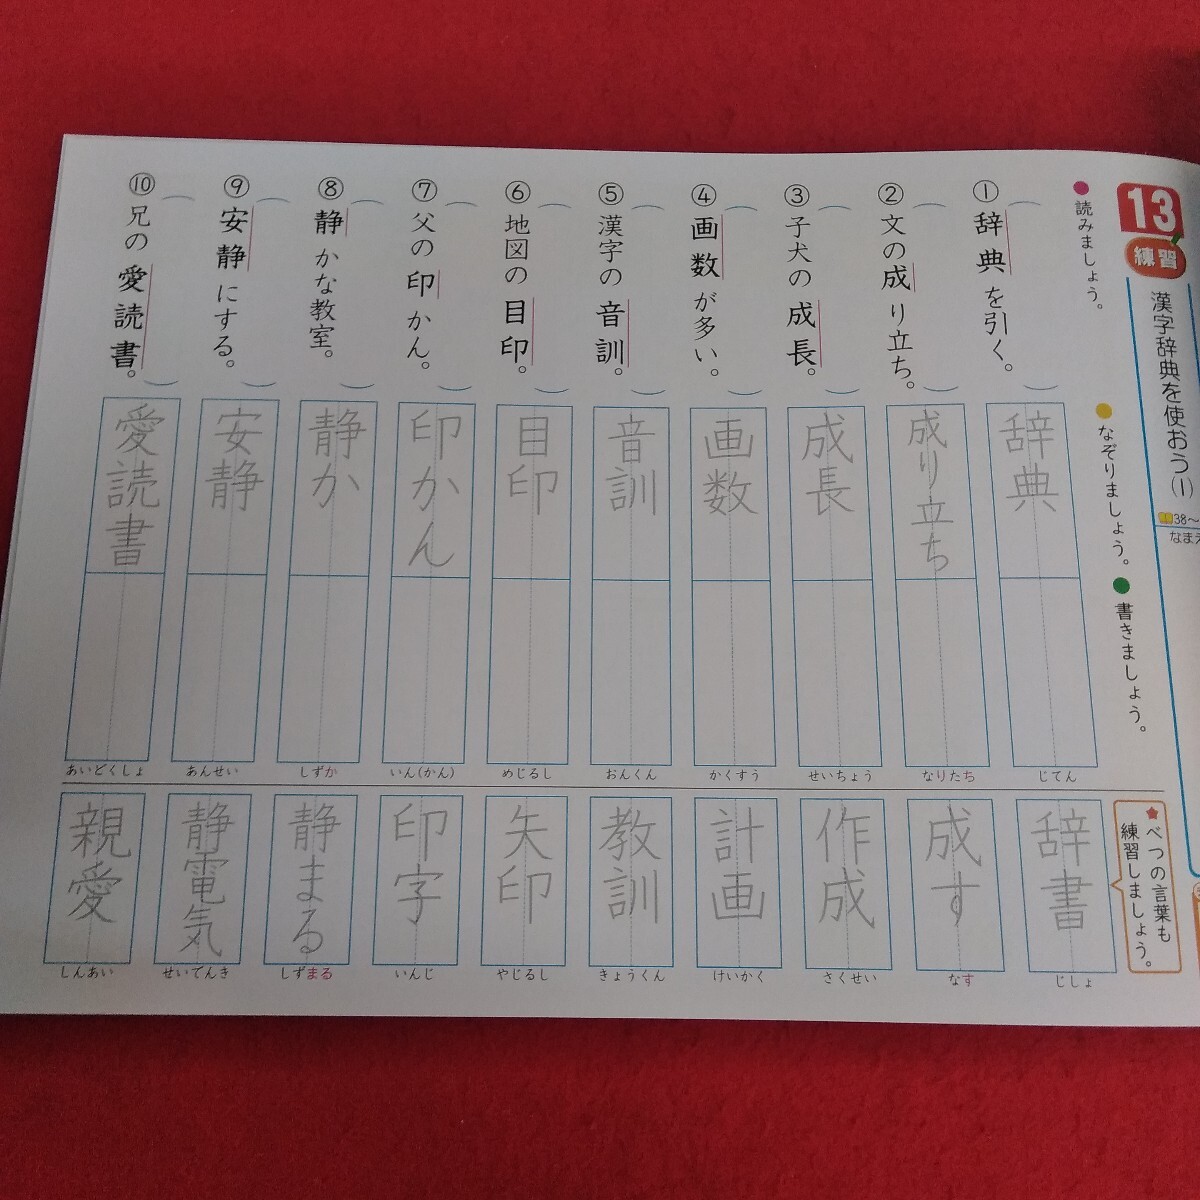 13
練習
漢字辞典を使おう(1)
38〜
なまえ
読みましょう。
なぞりましょう。
書きましょう。
①辞典を引く。
②文の成り立ち。
③子犬の成長。
④画数が多い。
⑤漢字の音訓。
⑥地図の目印。
⑦父の印かん。
⑧静かな教室。
⑨安静にする。
⑩兄の愛読書。
辞典
じてん
成り立ち
なりたち
成長
せいちょう
画数
かくすう
音訓
おんくん
目印
めじるし
印かん
いん(かん)
静か
しずか
安静
あんせい
愛読書
あいどくしょ
★べつの言葉も
練習しましょう。
辞書
じしょ
成す
なす
作成
さくせい
計画
けいかく
教訓
きょうくん
矢印
やじるし
印字
いんじ
静まる
しずまる
静電気
せいでんき
親愛
しんあい